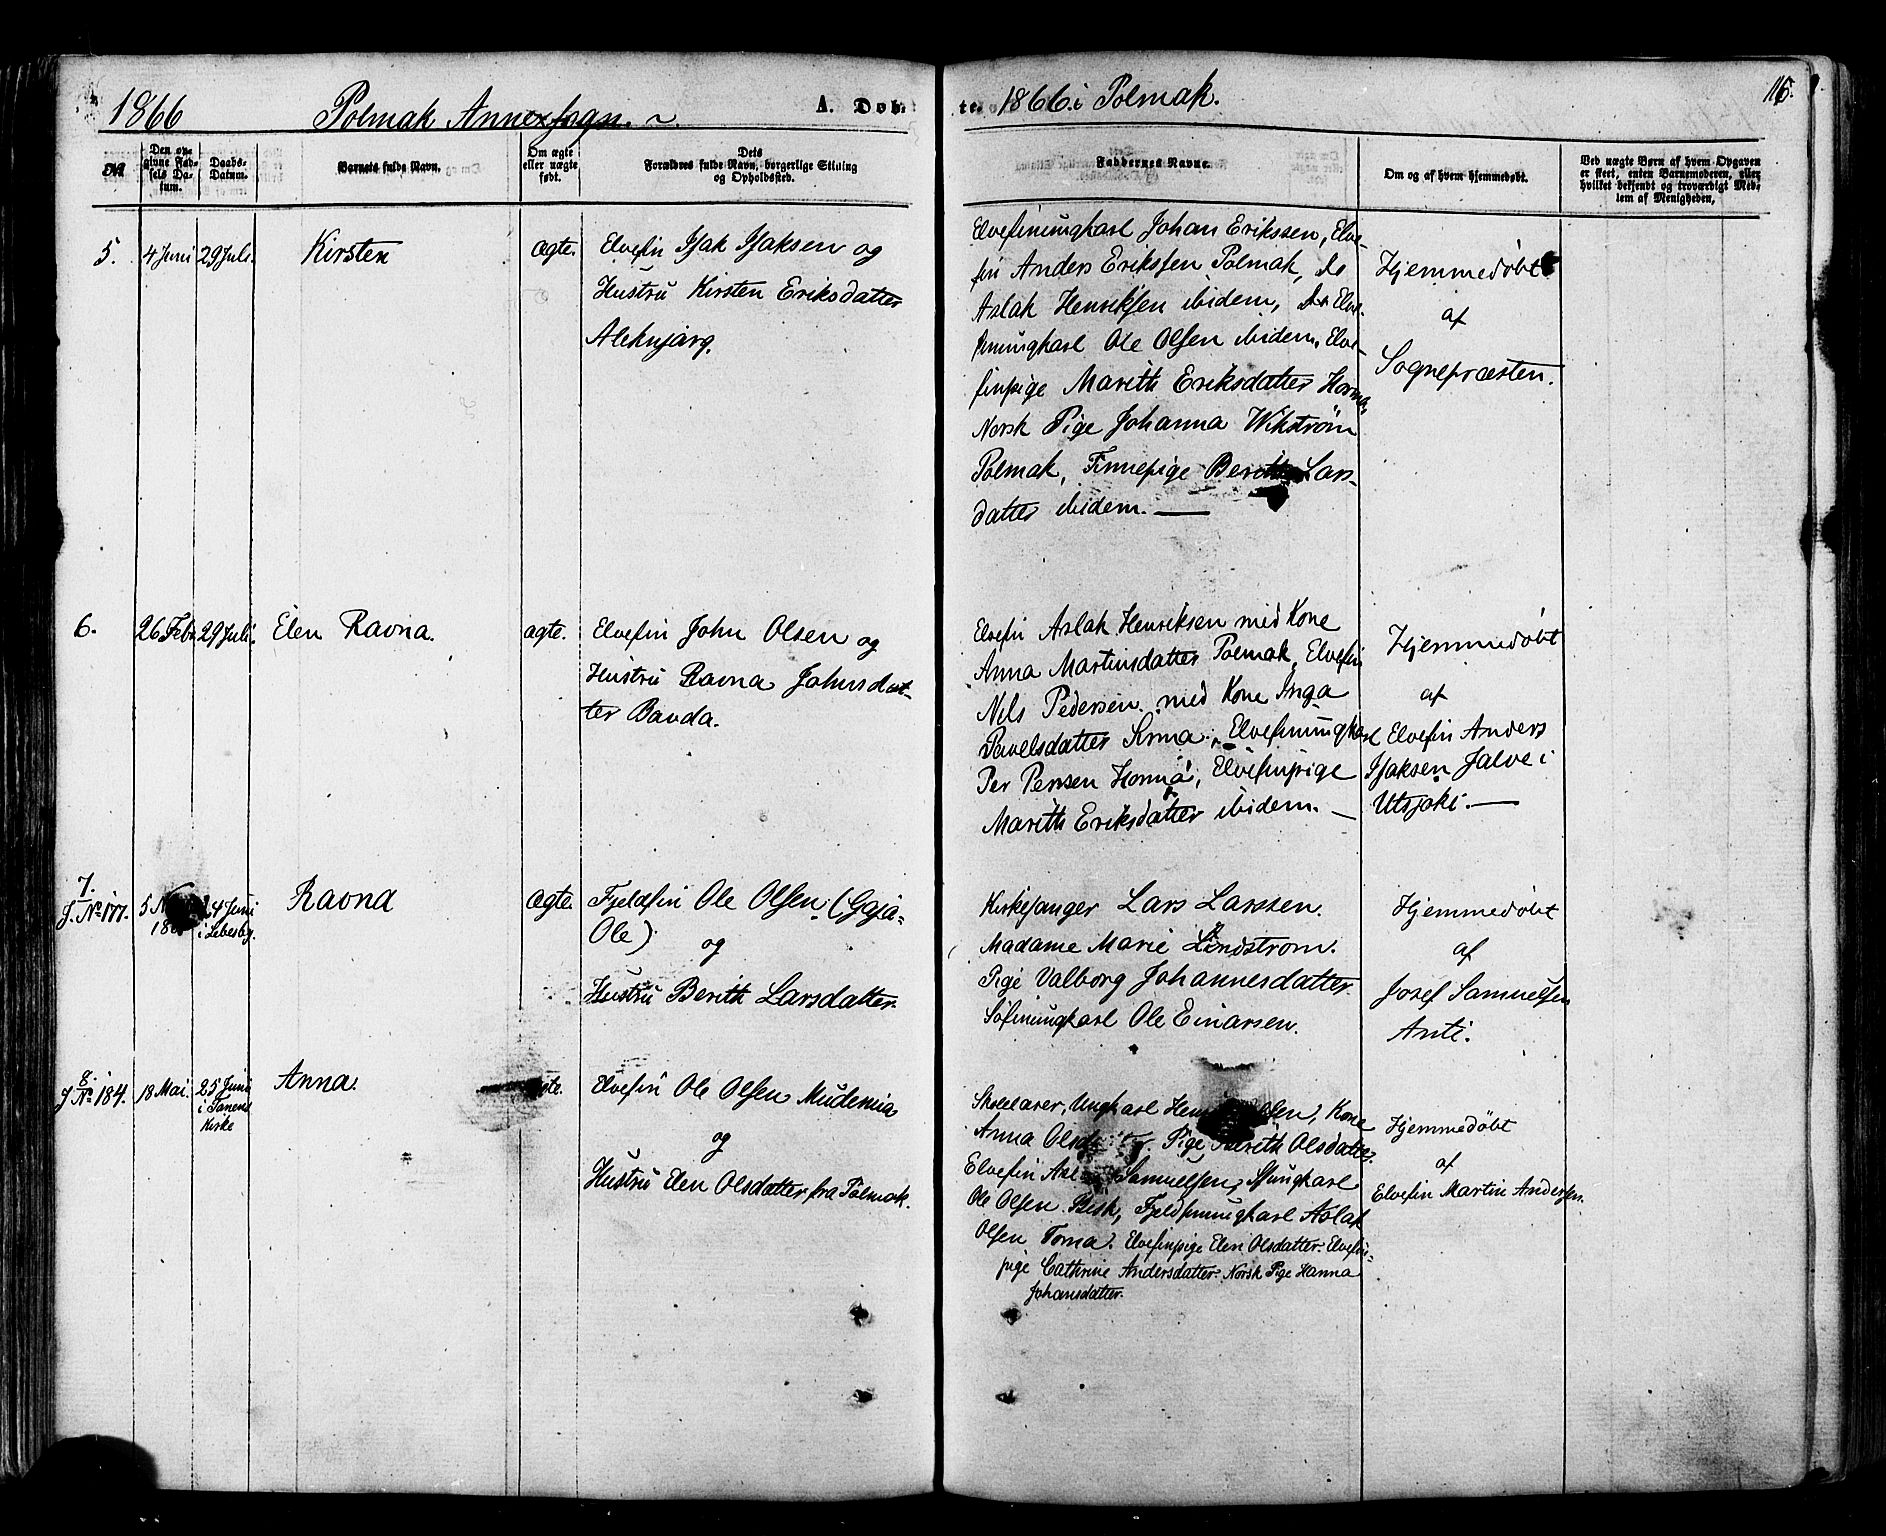 1866 Polmak Annexsogn.
A. Døb-
№
Den op-
givne Fød-
sels Da-
tum.
Daabs-
Datum.
Barnets fulde Navn.
Om ægte
eller uægte
født.
Dets
Forældres fulde Navn, borgerlige Stilling
og Opholdssted.
5.
4 Juni
29 Juli.
Kirsten
ægte.
Elvefin Isak Isaksen og
Hustru Kirsten Eriksdatter
Aleknjarg.
6.
26 Febr.
29 Juli.
Elen Ravna.
ægte.
Elvefin John Olsen og
Hustru Ravna Johnsdat-
ter Banda.
7.
J. No 177.
5
24 Juni
i Lebesby.
Ravna
ægte.
Fjeldfin Ole Olsen (Ggja-
Ole)
og
Hustru Berith Larsdatter.
8.
J. No 184.
18 Mai.
25 Juni
i Tanens
Kirke
Anna.
ægte.
Elvefin Ole Olsen Mudenia
og
Hustru Elen Olsdatter fra Polmak.
te. 1866 i Polmak.
116.
Faddernes Navne.
Om og af hvem hjemmedøbt.
Ved uægte Børn af hvem Opgaven
er skeet, enten Barnemoderen, eller
hvilket bekjendt og troværdigt Med-
lem af Menigheden,
Elvefinungkarl Johan Erikssen, Elve-
fin Anders Eriksen Polmak, do
Aslak Henriksen ibidem, do Elve-
finungkarl Ole Olsen ibidem, Elve-
finpige Marith Eriksdatter Horma,
Norsk Pige Johanna Wikstrøm
Polmak, Finnepige Berith Lars-
datter ibidem.
Hjemmedøbt
af
Sognepræsten.
Elvefin Aslak Henriksen med Kone
Anna Martinsdatter Polmak, Elvefin
Nils Pedersen med Kone Inga
Pavelsdatter Sirma, Elvefinungkarl
Per Persen Horma, Elvefinpige
Marith Eriksdatter ibidem.
Hjemmedøbt
af
Elvefin Anders
Isaksen Jalve i
Utsjoki.
Kirkesanger Lars Larssen.
Madame Marie Lindstrøm.
Pige Valborg Johannesdatter.
Søfinungkarl Ole Einarsen.
Hjemmedøbt
af
Josef Samuelsen
Anti.
Skolelærer, Ungkarl Kone
Anna Pige Marith Olsdatter.
Elvefin Samuelsen, Ungkarl
Ole Olsen Fjeldfinungkarl Aslak
Olsen Torna. Elvefinpige Elen Olsdatter. Elvefin-
pige Cathrine Andersdatter. Norsk Pige Hanna
Johansdatter.
Hjemmedøbt
af
Elvefin Martin Andersen.